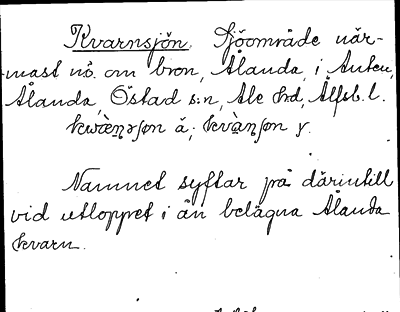 Kvarnsjön. Sjöområde när-
mast nö. om bron, Ålanda, i Anten,
Ålanda, Östad s:n, Ale hd, Älfsb. l.
kwàṇʒʃøn ä; kvàṇʃøn y.
Namnet syftar på därintill
vid utloppet i ån belägna Ålanda
kvarn.